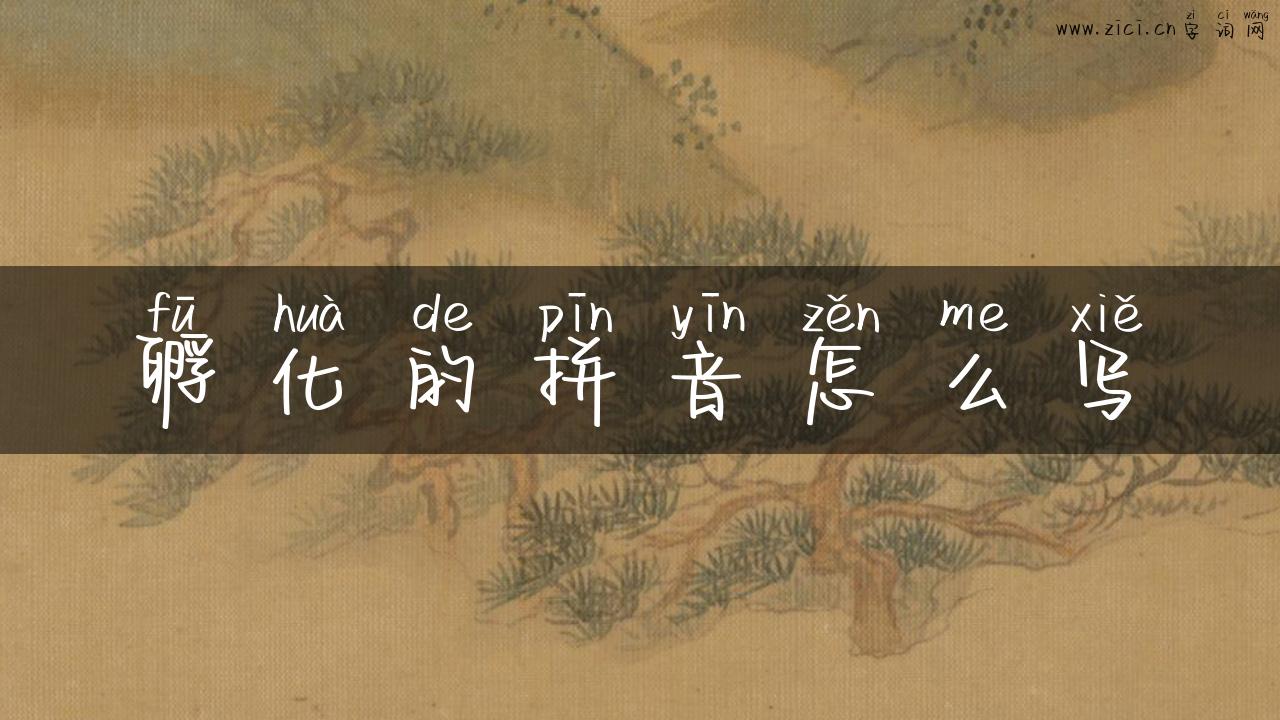 zì cí wǎng
www.zici.cn 字词网
fū huà de pīn yīn zěn me xiě
孵化的拼音怎么写